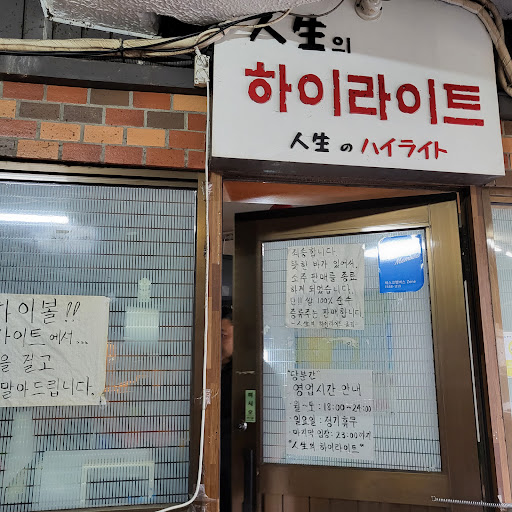 人生의
하이라이트
人生 の ハイライト
이볼!!
라이트에서...
을 걸고
말아드립니다.
죄송합니다.
찾힌 바가 있어서,
소주 판매를 종료
하게 되었습니다.
단!! 쌀 100% 순수
증류주는 판매합니다.
"당분간"
영업시간 안내
월~토 : 18:00~24:00
일요일 : 정기휴무
마지막 입장 : 23:00까지
"人生의 하이라이트"